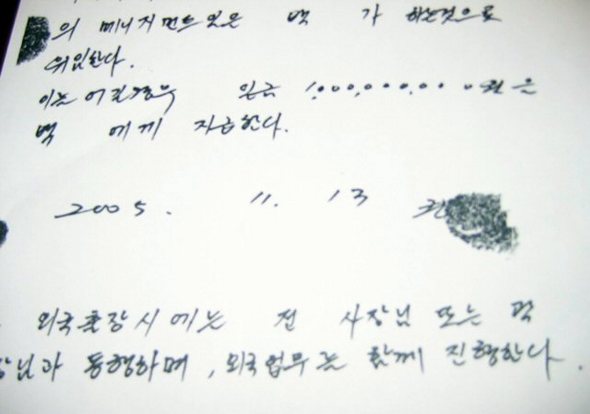 의 메니지먼트일은 백 가 하는것으로
위임한다.
이를 어길경우 일금 1,000,000,000원을
백 에게 지급한다.
2005. 11. 13
외국출장시에는 전 사장님 또는 곽
장님과 동행하며, 외국업무는 함께 진행한다.